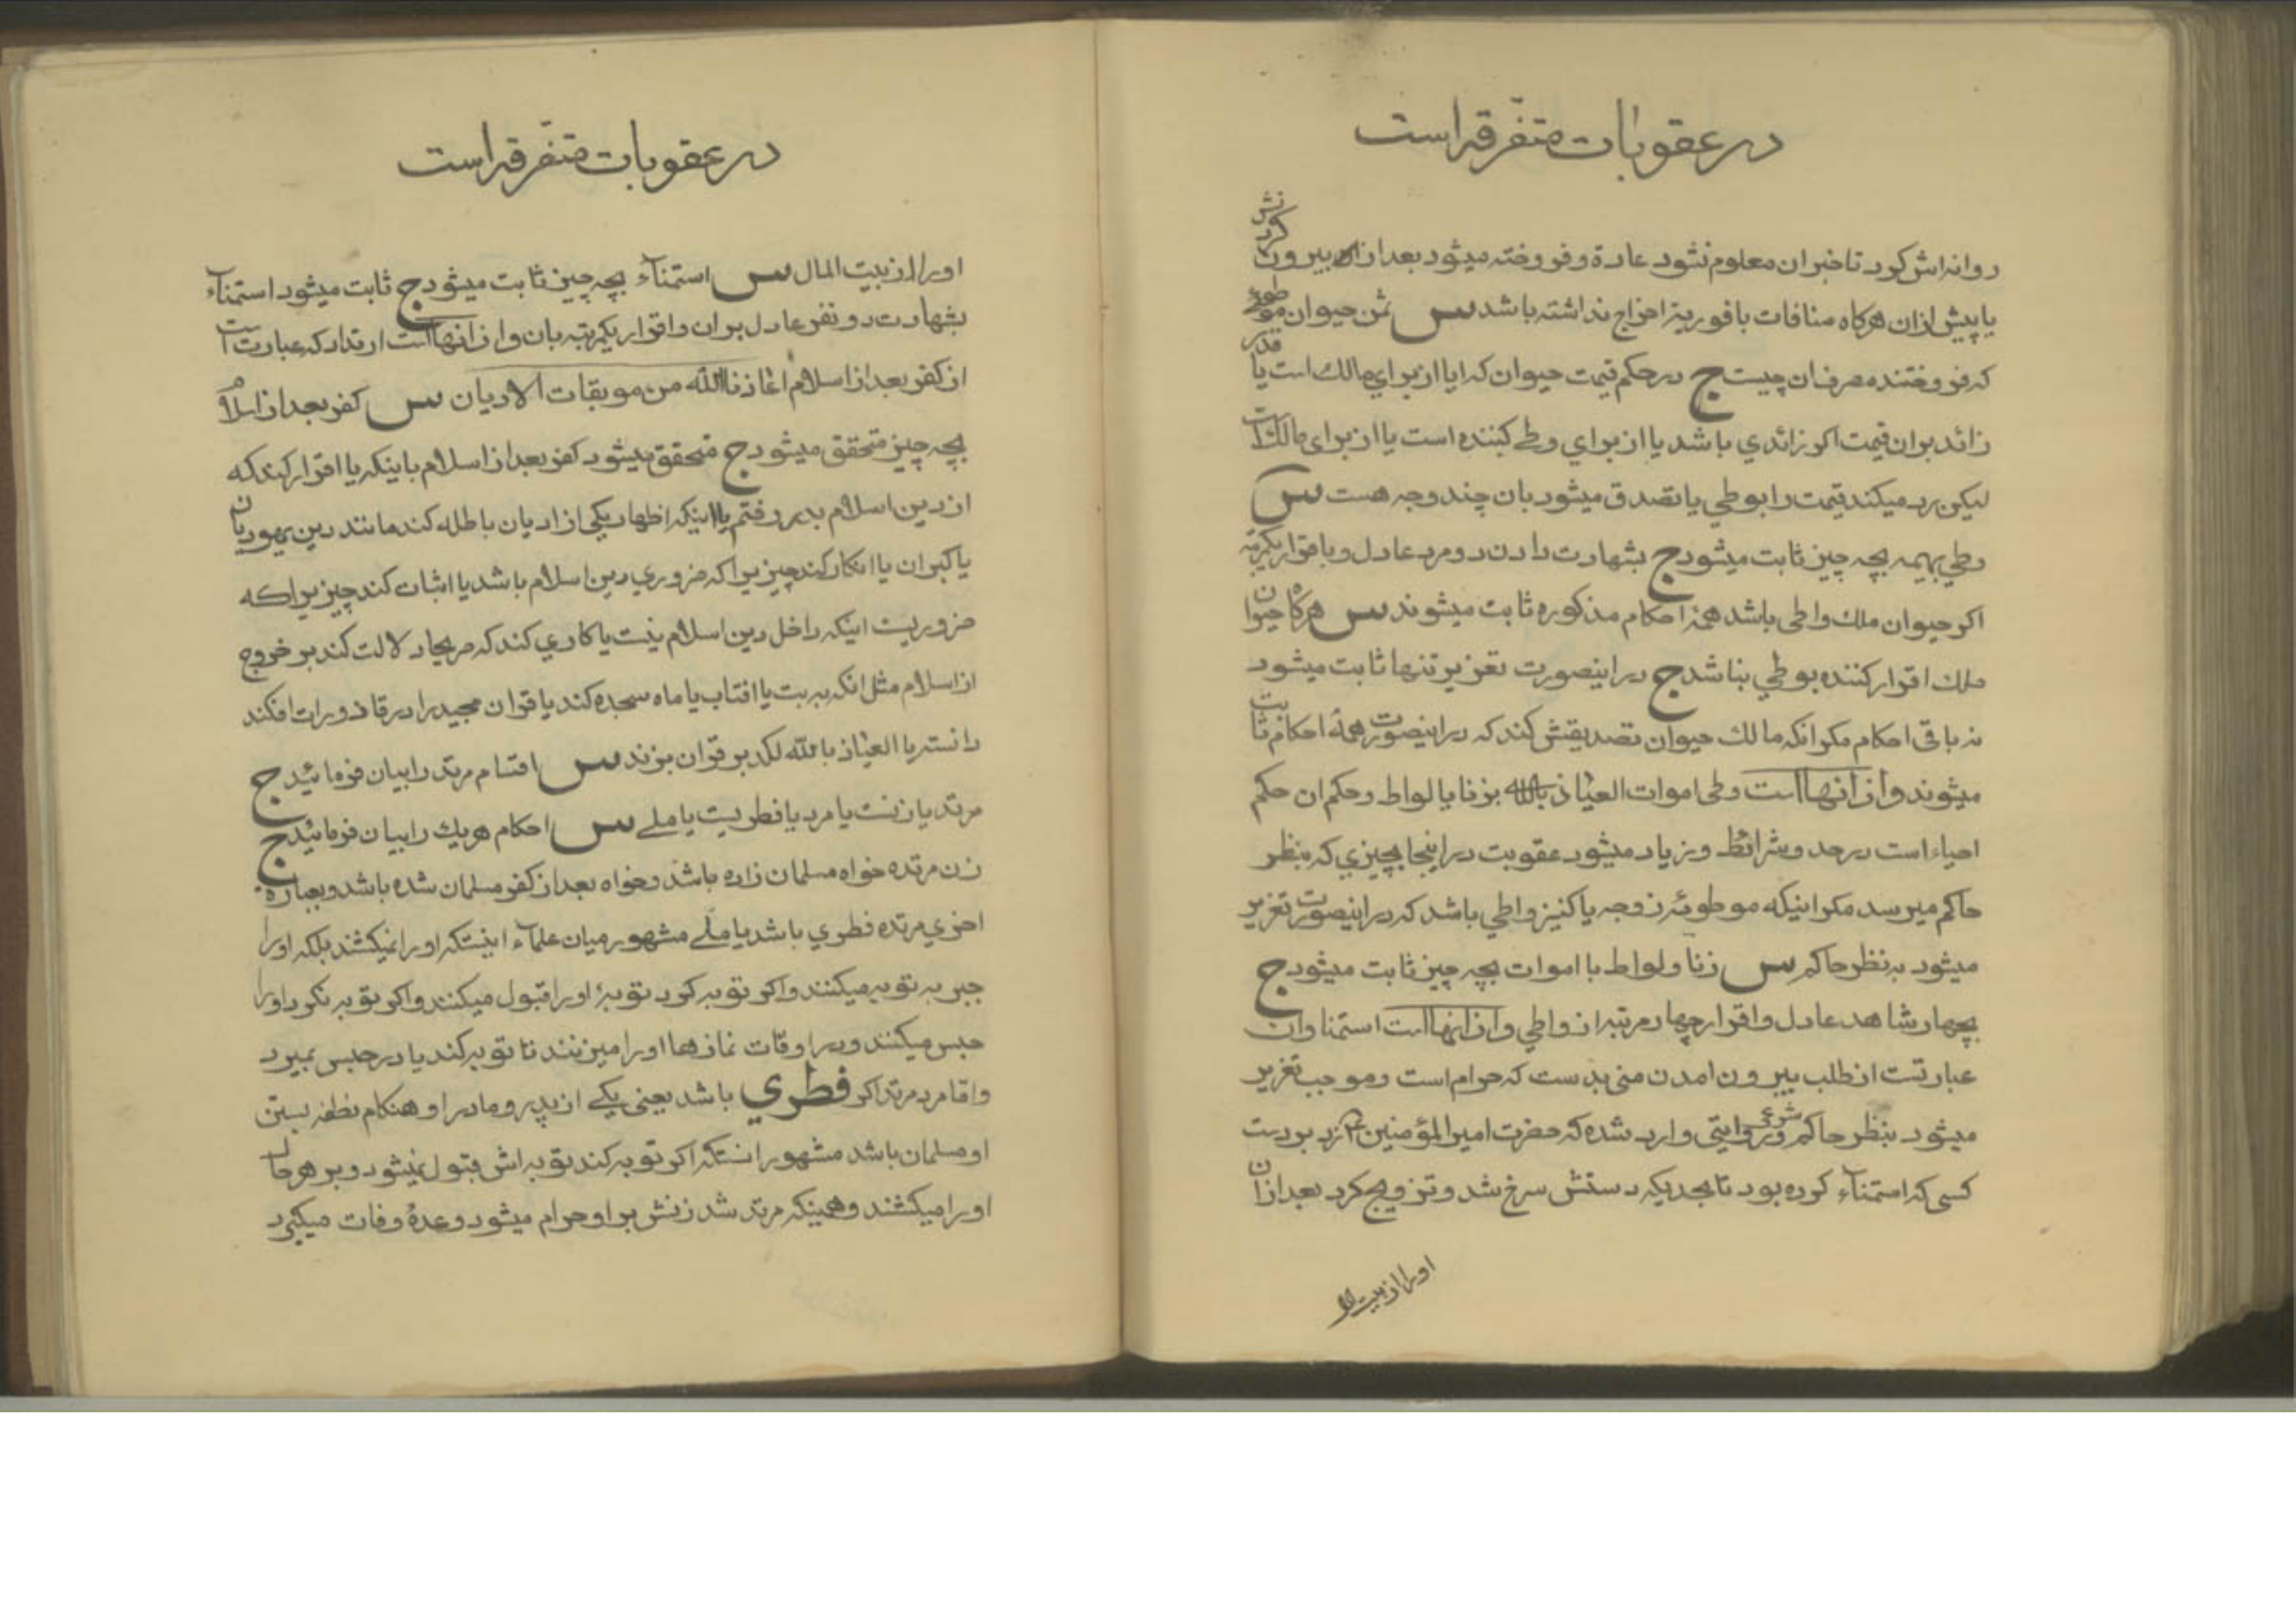 در عقوبات متفرقه است
روانه‌اش کرد تا خبر ان معلوم نشود عادة و فروخته میشود بعد از بیرون کردنش
یا پیش از ان هرکاه منافات با فوریة اخراج نداشته باشد س ثمن حیوان موطوئه
که فروختند مصرف ان چیست ج در حکم قیمت حیوان که ایا از برای مالك است یا قدر
زائد بر ان قیمت اکر زائدی باشد یا از برای وطی کننده است یا از برای مالك است
لیکن رد میکند قیمت را بوطی یا تصدق میشود بان چند وجه هست س
وطی بهیمه بچه چیز ثابت میشود ج بشهادت دادن دو مرد عادل و باقرار یکمرتبه
اکر حیوان ملك واطی باشد همهٔ احکام مذکوره ثابت میشوند س هرکاه حیوان
ملك اقرار کننده بوطی نباشد ج در اینصورت تعزیر تنها ثابت میشود
نه باقی احکام مکر انکه مالك حیوان تصدیقش کند که در اینصورت همهٔ احکام ثابت
میشوند و از انهااست وطی اموات العیاذ بالله بزنا یا لواط و حکم ان حکم
احیاء است در حد و شرائط و زیاد میشود عقوبت در اینجا بچیزی که بنظر
حاکم میرسد مکر اینکه موطوئه زوجه یا کنیز واطی باشد که در اینصورت تعزیر
میشود به نظر حاکم س زنا و لواط با اموات بچه چیز ثابت میشود ج
بچهار شاهد عادل و اقرار چهار مرتبه از واطی و از انهااست استمنا و ان
عبارتست از طلب بیرون امدن منی بدست که حرام است و موجب تعزیر
میشود بنظر حاکم شرع و در روایتی وارد شده که حضرت امیر المؤمنین ع زد بر دست
کسی که استمناء کرده بود تا بحدیکه دستش سرخ شد و تزویج کرد بعد از ان
او را از بیت الما
در عقوبات متفرقه است
او را از بیت المال س استمناء بچه چیز ثابت میشود ج ثابت میشود استمناء
بشهادت دو نفر عادل بر ان و اقرار یکمرتبه بان و از انهااست ارتداد که عبارتست
از کفر بعد از اسلام اعاذنا الله من موبقات الادیان س کفر بعد از اسلام
بچه چیز متحقق میشود ج متحقق میشود کفر بعد از اسلام باینکه یا اقرار کند که
از دین اسلام بدر رفتم یا اینکه اظهار یکی از ادیان باطله کند مانند دین یهودیان
یا کبران یا انکار کند چیزیرا که ضروری دین اسلام باشد یا اثبات کند چیزیرا که
ضروریست اینکه داخل دین اسلام نیست یا کاری کند که صریحا دلالت کند بر خروج
از اسلام مثل انکه به بت یا افتاب یا ماه سجده کند یا قران مجید را در قاذورات افکند
دانسته یا العیاذ بالله لکد بر قران بزند س اقسام مرتد را بیان فرمائید ج
مرتد یا زنست یا مرد یا فطریست یا ملی س احکام هریك را بیان فرمائید ج
زن مرتده خواه مسلمان زاده باشد و خواه بعد از کفر مسلمان شده باشد و بعبارة
اخری مرتده فطری باشد یا ملّی مشهور میان علماء اینستکه او را نمیکشند بلکه او را
جبر به توبه میکنند و اکر توبه کرد توبهٔ او را قبول میکنند و اکر توبه نکرد او را
حبس میکنند و در اوقات نمازها او را میزنند تا توبه کند یا در حبس بمیرد
و اما مرد مرتد اکر فطری باشد یعنی یکی از پدر و مادر او هنکام نطفه بستن
او مسلمان باشد مشهور انستکه اکر توبه کند توبه‌اش قبول نمیشود و بر هر حال
او را میکشند و همینکه مرتد شد زنش بر او حرام میشود و عدهٔ وفات میکیرد